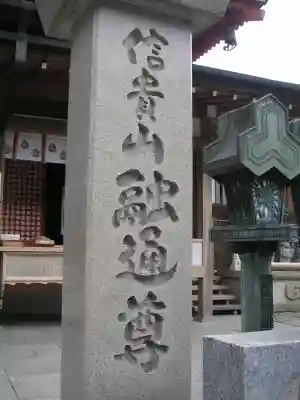 信貴山融通尊